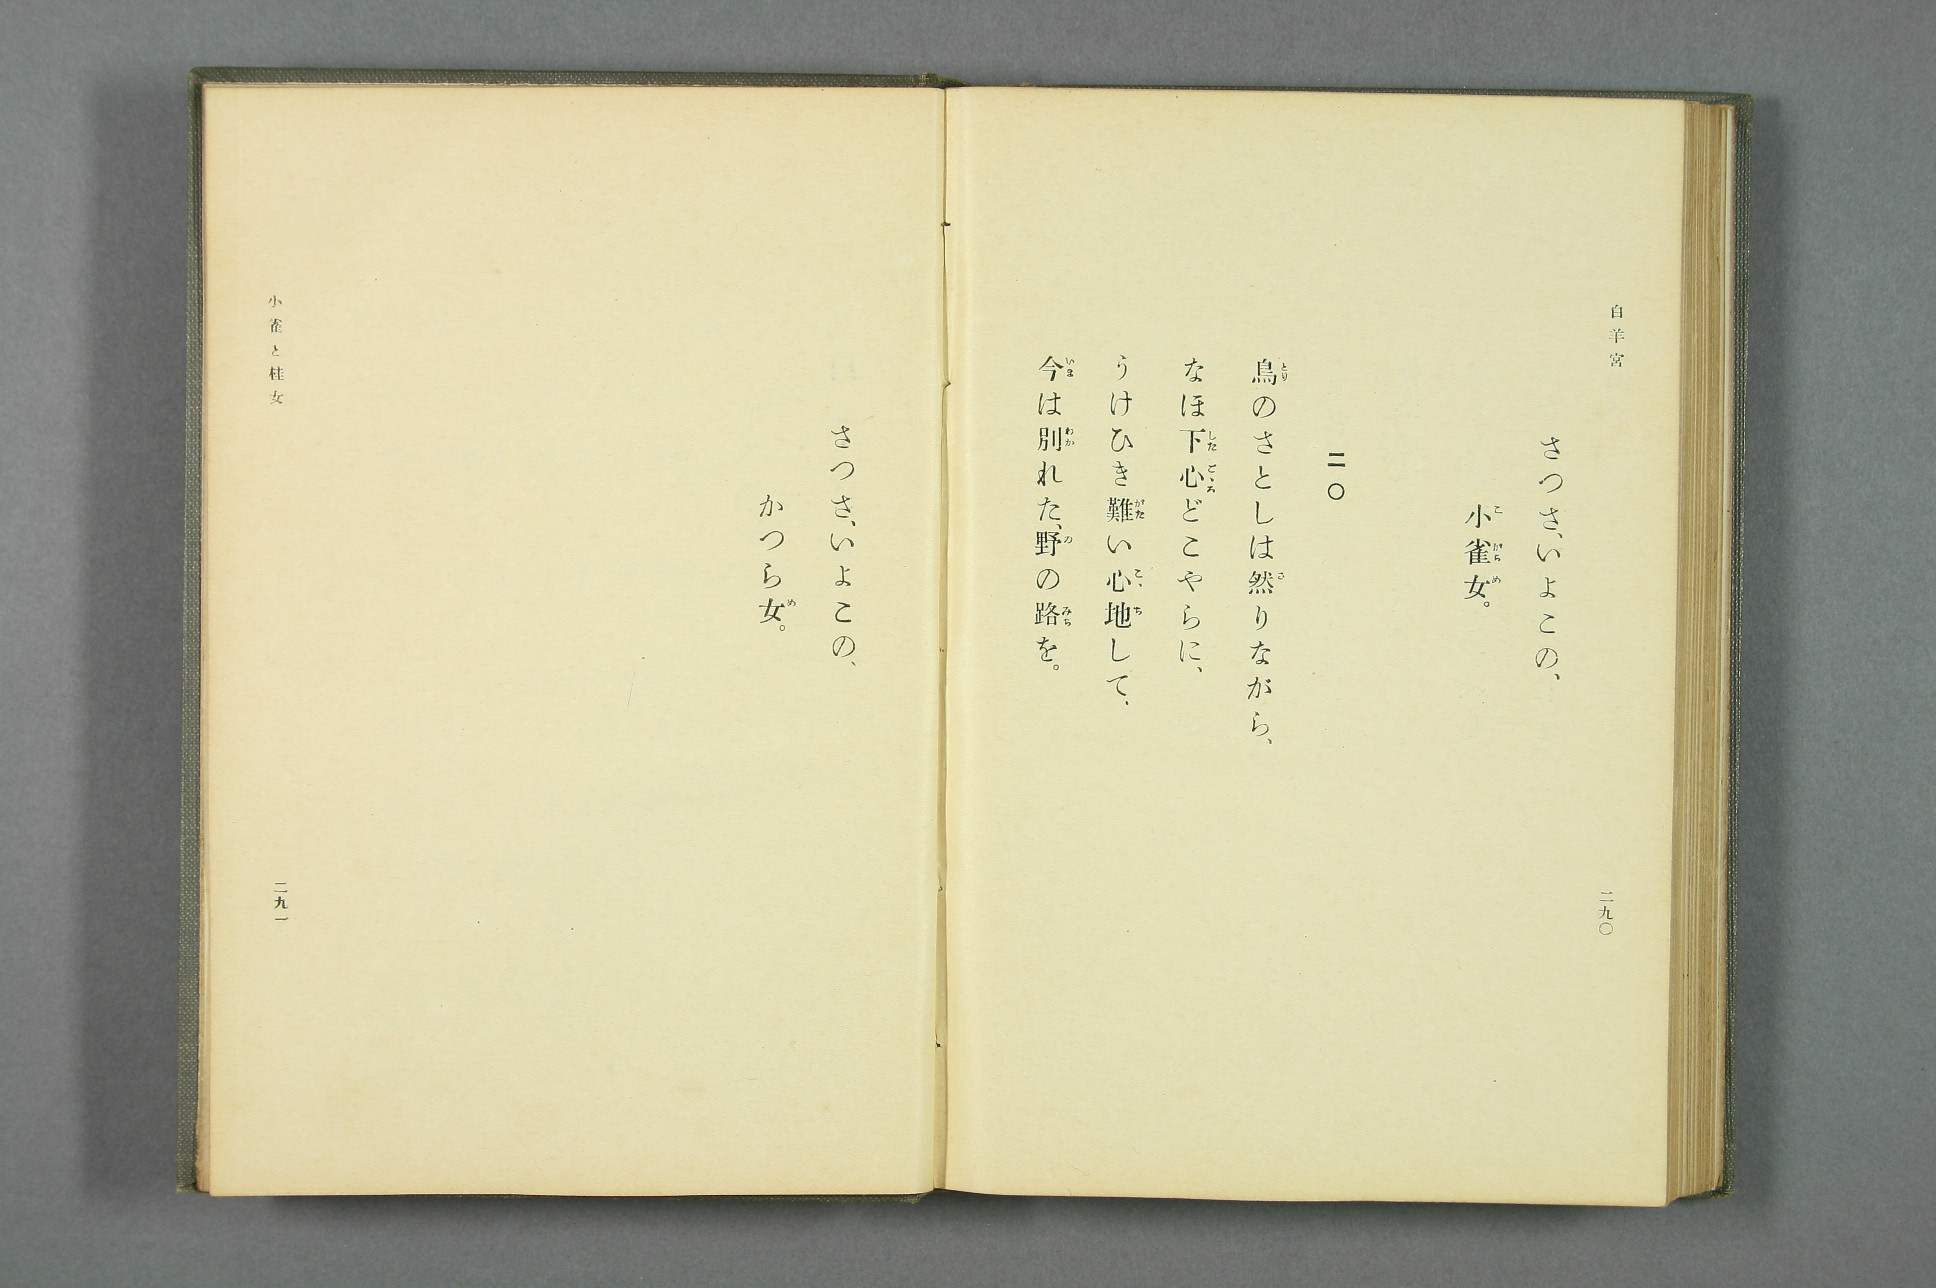 白羊宮
さつさ、いよこの、
小雀女。
二〇
鳥のさとしは然りながら、
なほ下心どこやらに、
うけひき難い心地して、
今は別れた、野の路を。
二九〇
さつさ、いよこの、
かつら女。
小雀と桂女
二九一